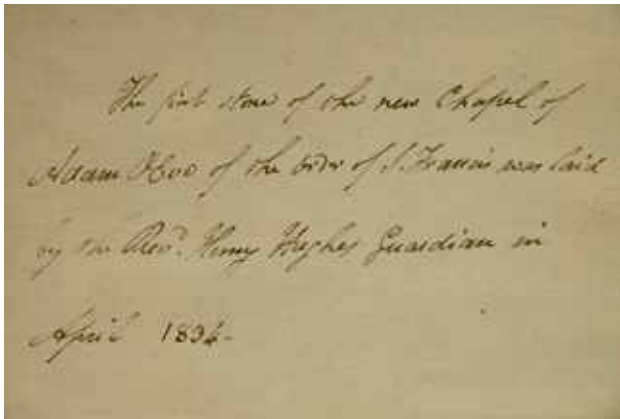 The first stone of the new Chapel of
Adam &Eve of the order of S. Francis was laid
by the Revd. Henry Hughes Guardian in
April 183